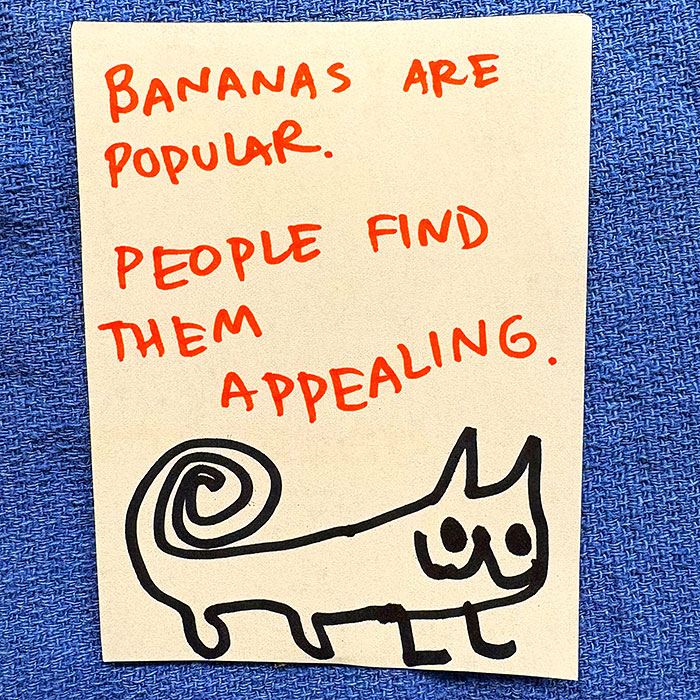 BANANAS ARE
POPULAR.
PEOPLE FIND
THEM
APPEALING.